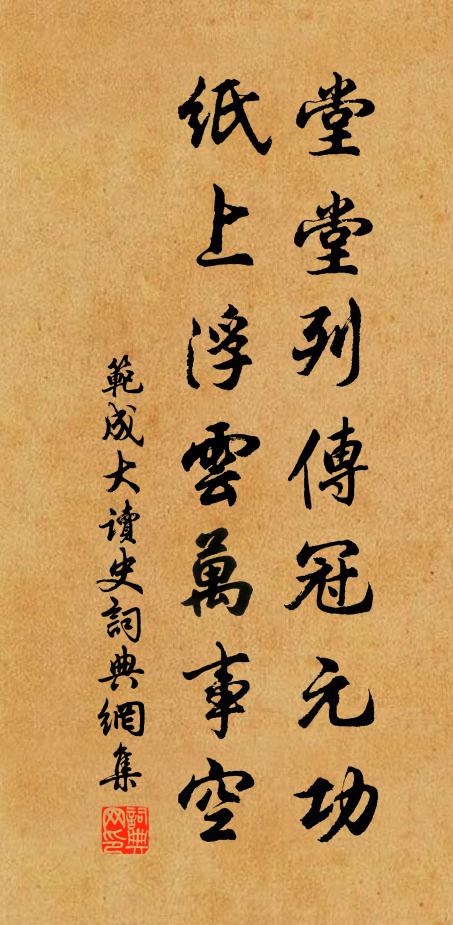 堂堂列傳冠元功
紙上浮雲萬事空
範成大讀史詞典網集
詞典网印